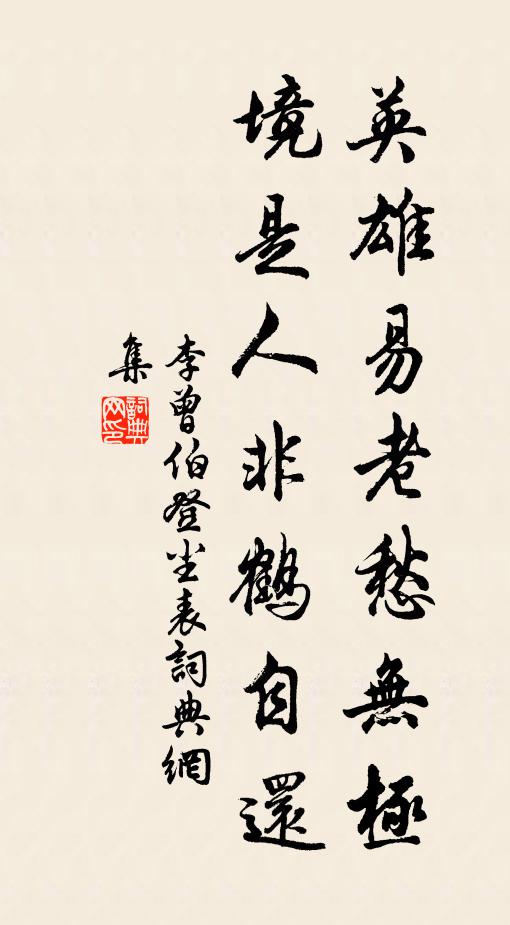 英雄易老愁無極
境是人非鶴自還
李曾伯登坐表詞典網
集
詞典
网印